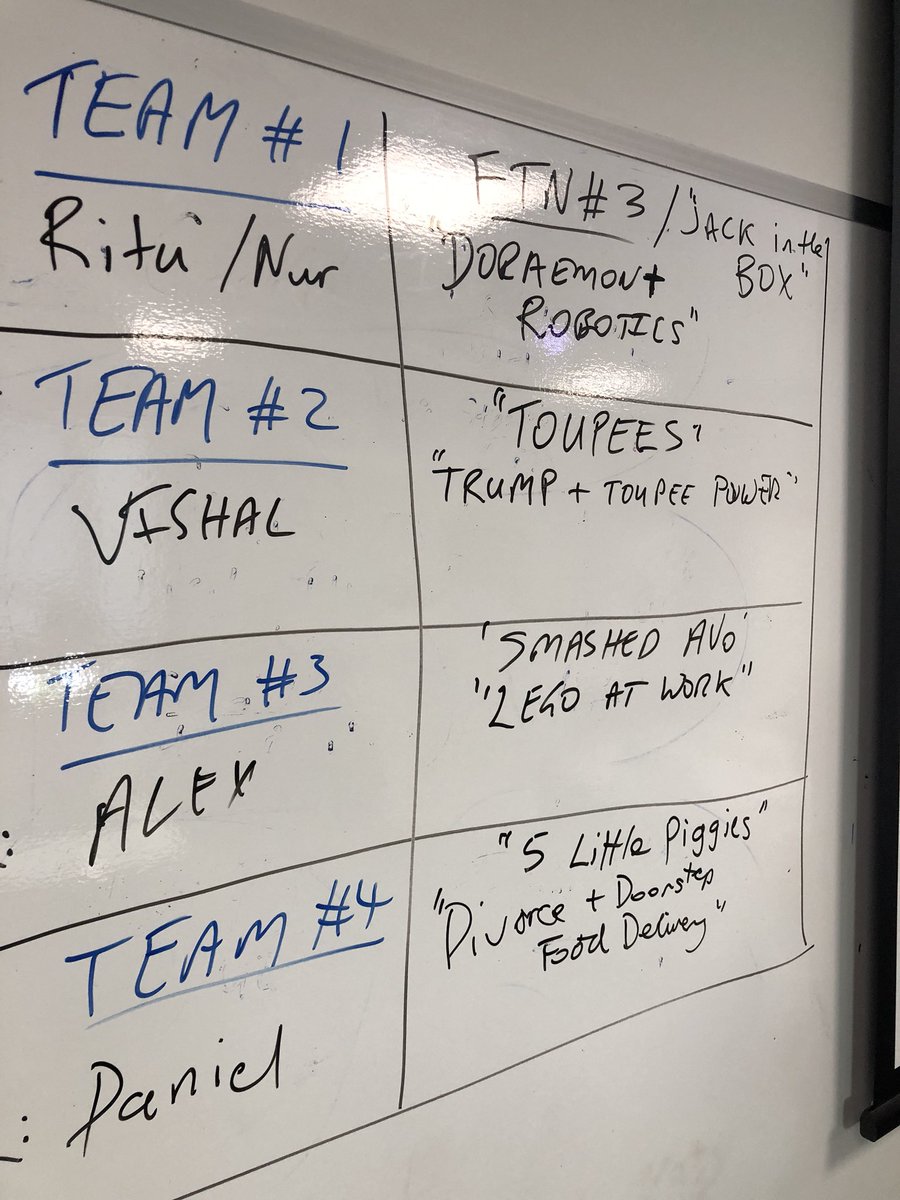 TEAM # 1
Ritu /Nur
FTN#3 / "JACK in the
BOX"
"DORAEMON +
ROBOTICS"
TEAM #2
VISHAL
"TOUPEES"
"TRUMP + TOUPEE POWER"
TEAM #3
ALEX
'SMASHED AVO'
"LEGO AT WORK"
TEAM #4
Daniel
"5 Little Piggies"
"Divorce + Doorstep
Food Delivery"